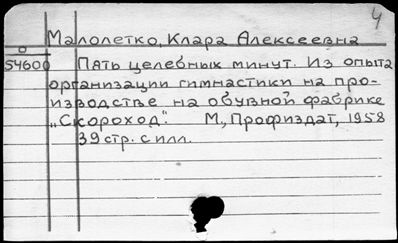 4
Малолетко, Клара Алексеевна
0
54600 Пять целебных минут. Из опыта
организации гимнастики на про-
изводстве на обувной фабрике
„Скороход". М., Профиздат, 1958
39 стр. с илл.